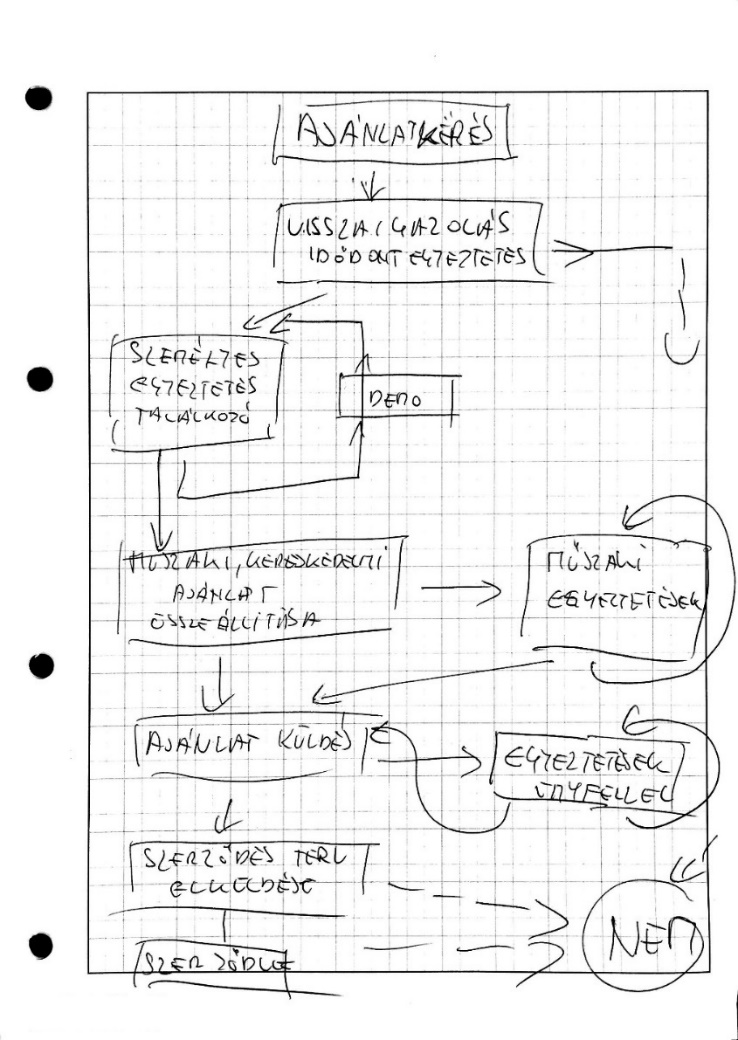 AJÁNLATKÉRÉS
VISSZAIGAZOLÁS
IDŐPONT EGYEZTETÉS
SZEMÉLYES
EGYEZTETÉS
TALÁLKOZÓ
DEMO
MŰSZAKI, KERESKEDELMI
AJÁNLAT
ÖSSZEÁLLÍTÁSA
MŰSZAKI
EGYEZTETÉSEK
AJÁNLAT KÜLDÉS
EGYEZTETÉSEK
SZERZŐDÉS TERV
ELKÜLDÉSE
NEM